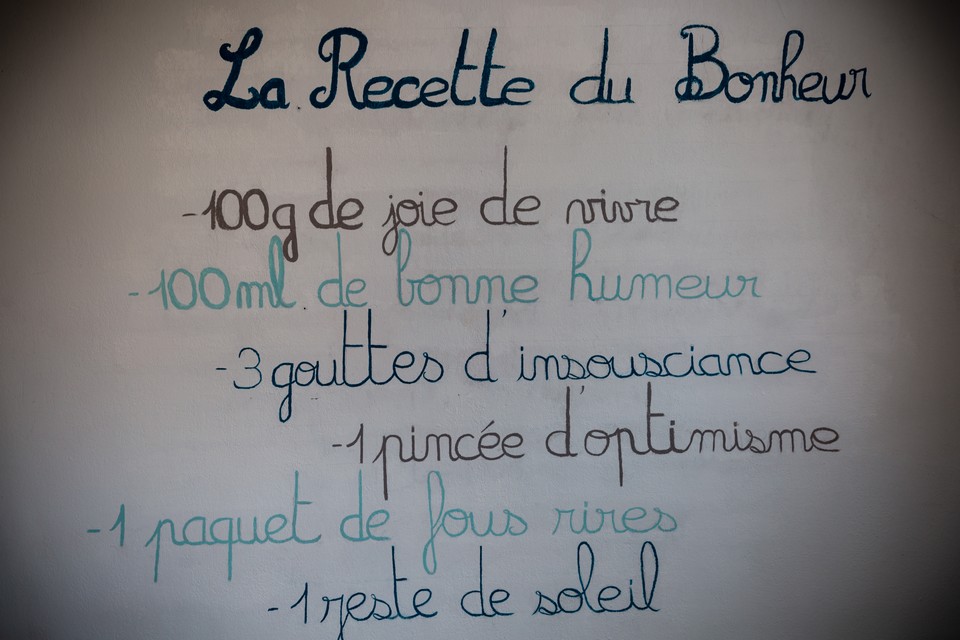 La Recette du Bonheur
-100g de joie de vivre
-100ml de bonne humeur
-3 gouttes d'insousciance
-1 pincée d'optimisme
-1 paquet de fous rires
-1 zeste de soleil